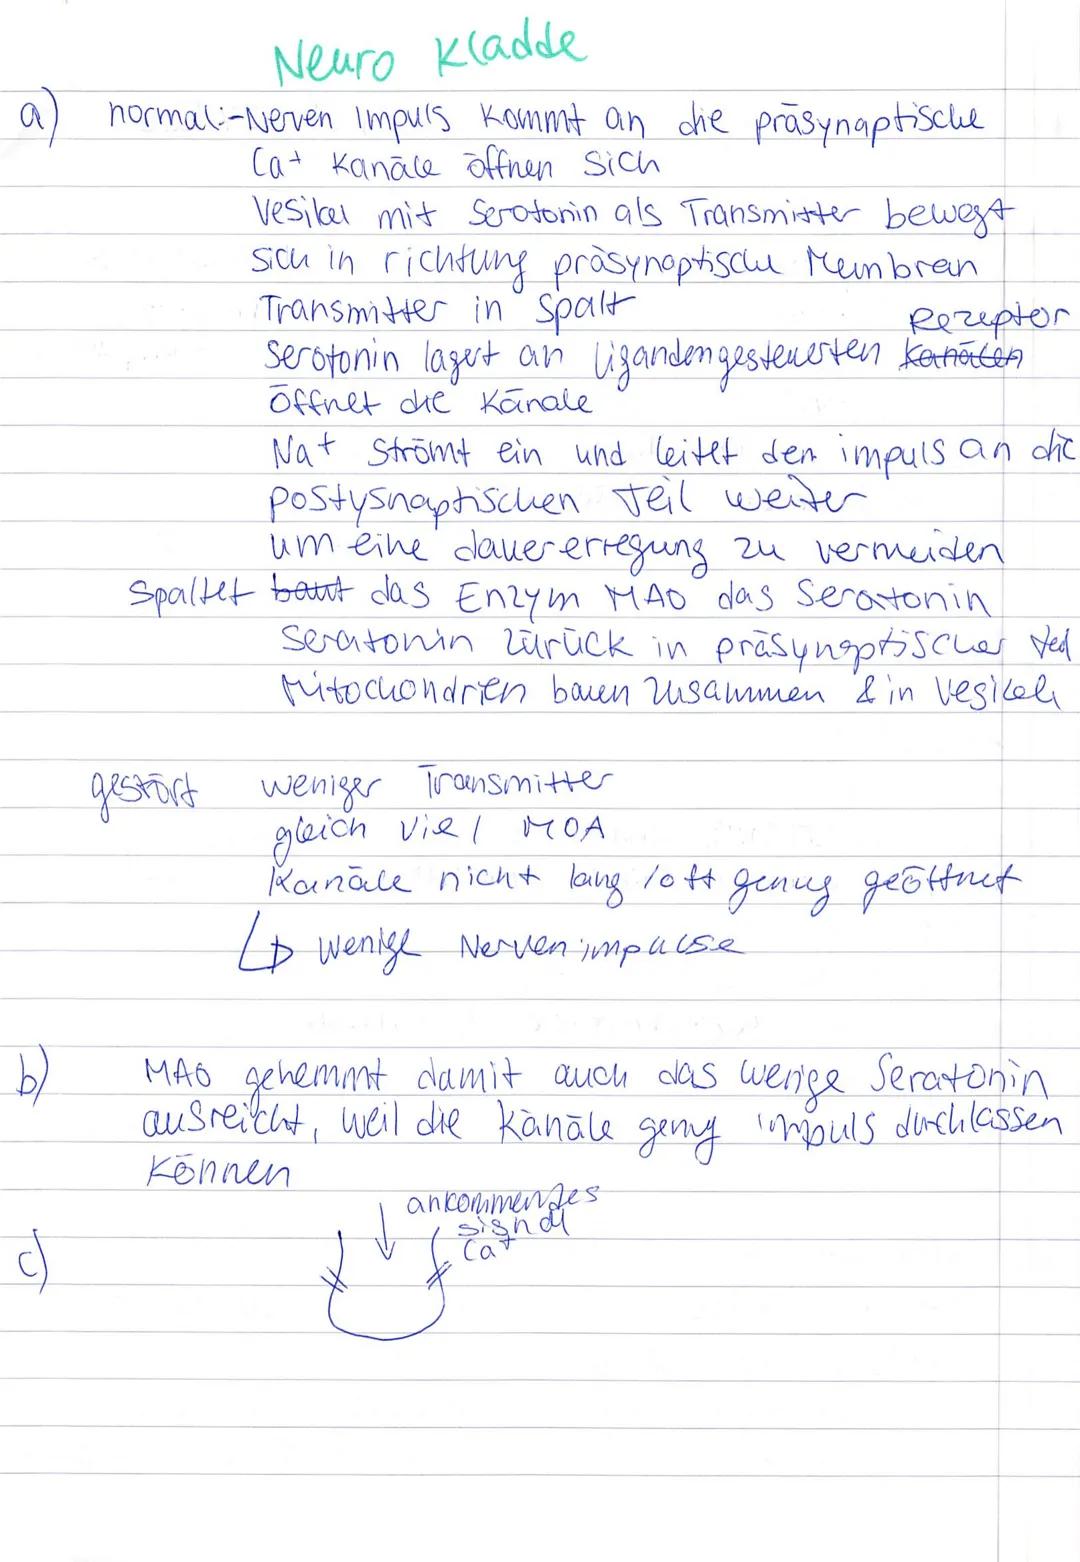 Neuro Kladde
a) normal:-Nerven Impuls kommt an die präsynaptische
Ca+ Kanäle öffnen sich
Vesikel mit Serotonin als Transmitter bewegt
sich in richtung präsynaptische Membran
Transmitter in Spalt
Rezeptor
Serotonin lagert an ligandengesteuerten Kanälen
Öffnet die Kanäle
Na+ Strömt ein und leitet den impuls an die
postysnaptischen Teil weiter
um eine dauererregung zu vermeiden
Spaltet baut das Enzym MAO das Seratonin
Seratonin zürück in präsynaptischer Teil
Mitochondrien bauen zusammen & in Vesikel
gestört weniger Transmitter
gleich viel MOA
Kanäle nicht lang/oft genug geöffnet
↳ wenige Nervenimpulse
b) MAO gehemmt damit auch das wenige Seratonin
ausreicht, weil die Kanäle genug impuls durchlassen
können
ankommendes
signal
c) Ca+